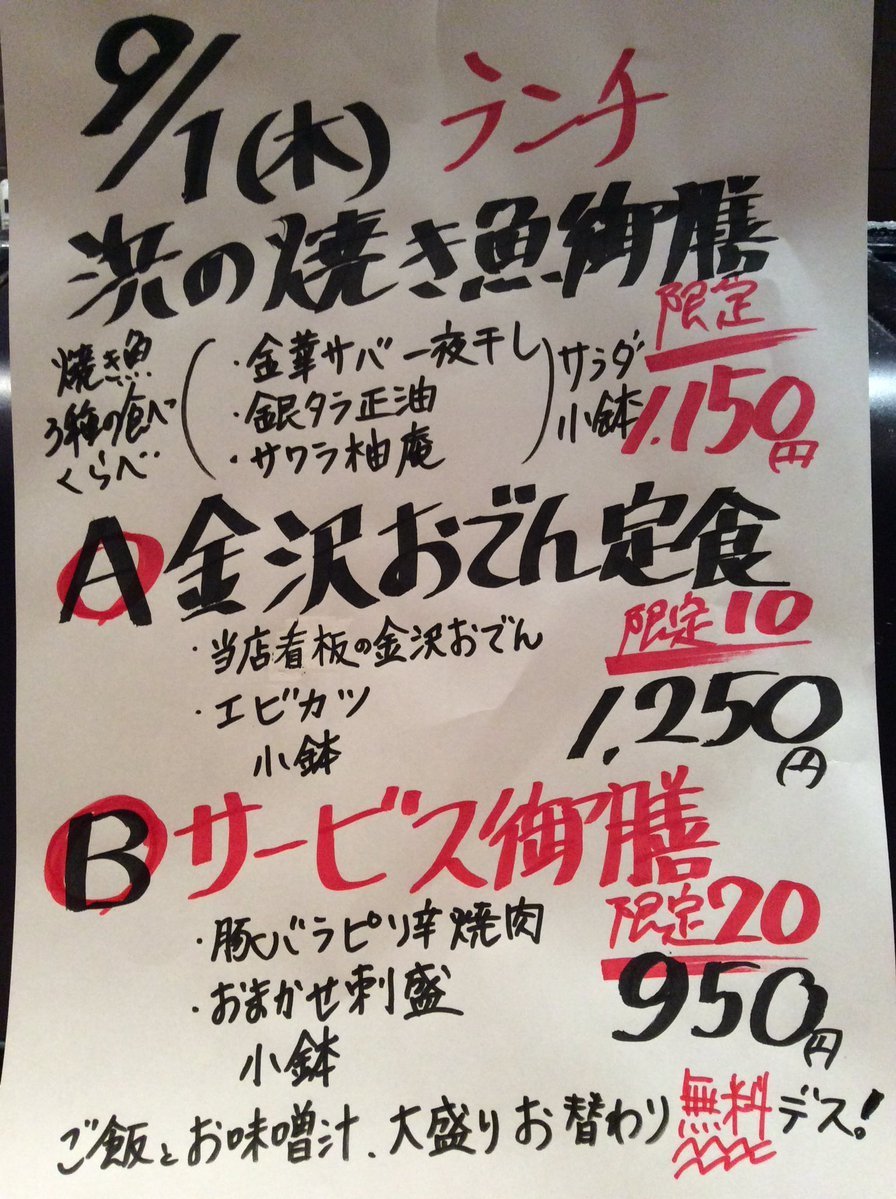 9/1(木) ランチ
浜の焼き魚御膳
限定
焼き魚
3種の食べ
くらべ
・金華サバ一夜干し
・銀タラ正油
・サワラ柚庵
サラダ
小鉢
1,150円
A 金沢おでん定食
限定10
・当店看板の金沢おでん
・エビカツ
小鉢
1,250円
B サービス御膳
限定20
・豚バラピリ辛焼肉
・おまかせ刺盛
小鉢
950円
ご飯とお味噌汁、大盛りお替わり無料デス!